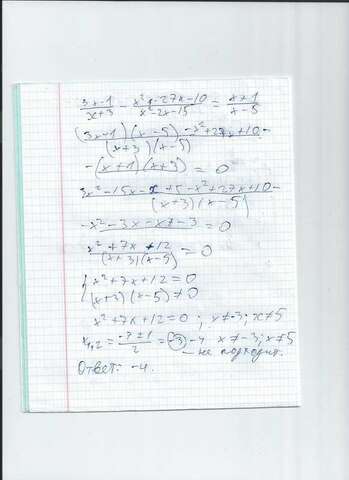 (3x-1)/(x+3) - (x²+27x-10)/(x²-2x-15) = (x+1)/(x-5)
((3x-1)(x-5)-x²+27x+10-
(x+3)(x-5)
-(x+1)(x+3) = 0
3x²-15x-x+5-x²+27x+10-
(x+3)(x-5)
-x²-3x-x-3 = 0
(x²+7x+12)/((x+3)(x-5)) = 0
{x²+7x+12=0
(x+3)(x-5)≠0
x²+7x+12=0; x≠-3; x≠5
x₁,₂ = (-7±1)/2 = -3; -4 x≠-3; x≠5
- не подходит.
Ответ: -4.